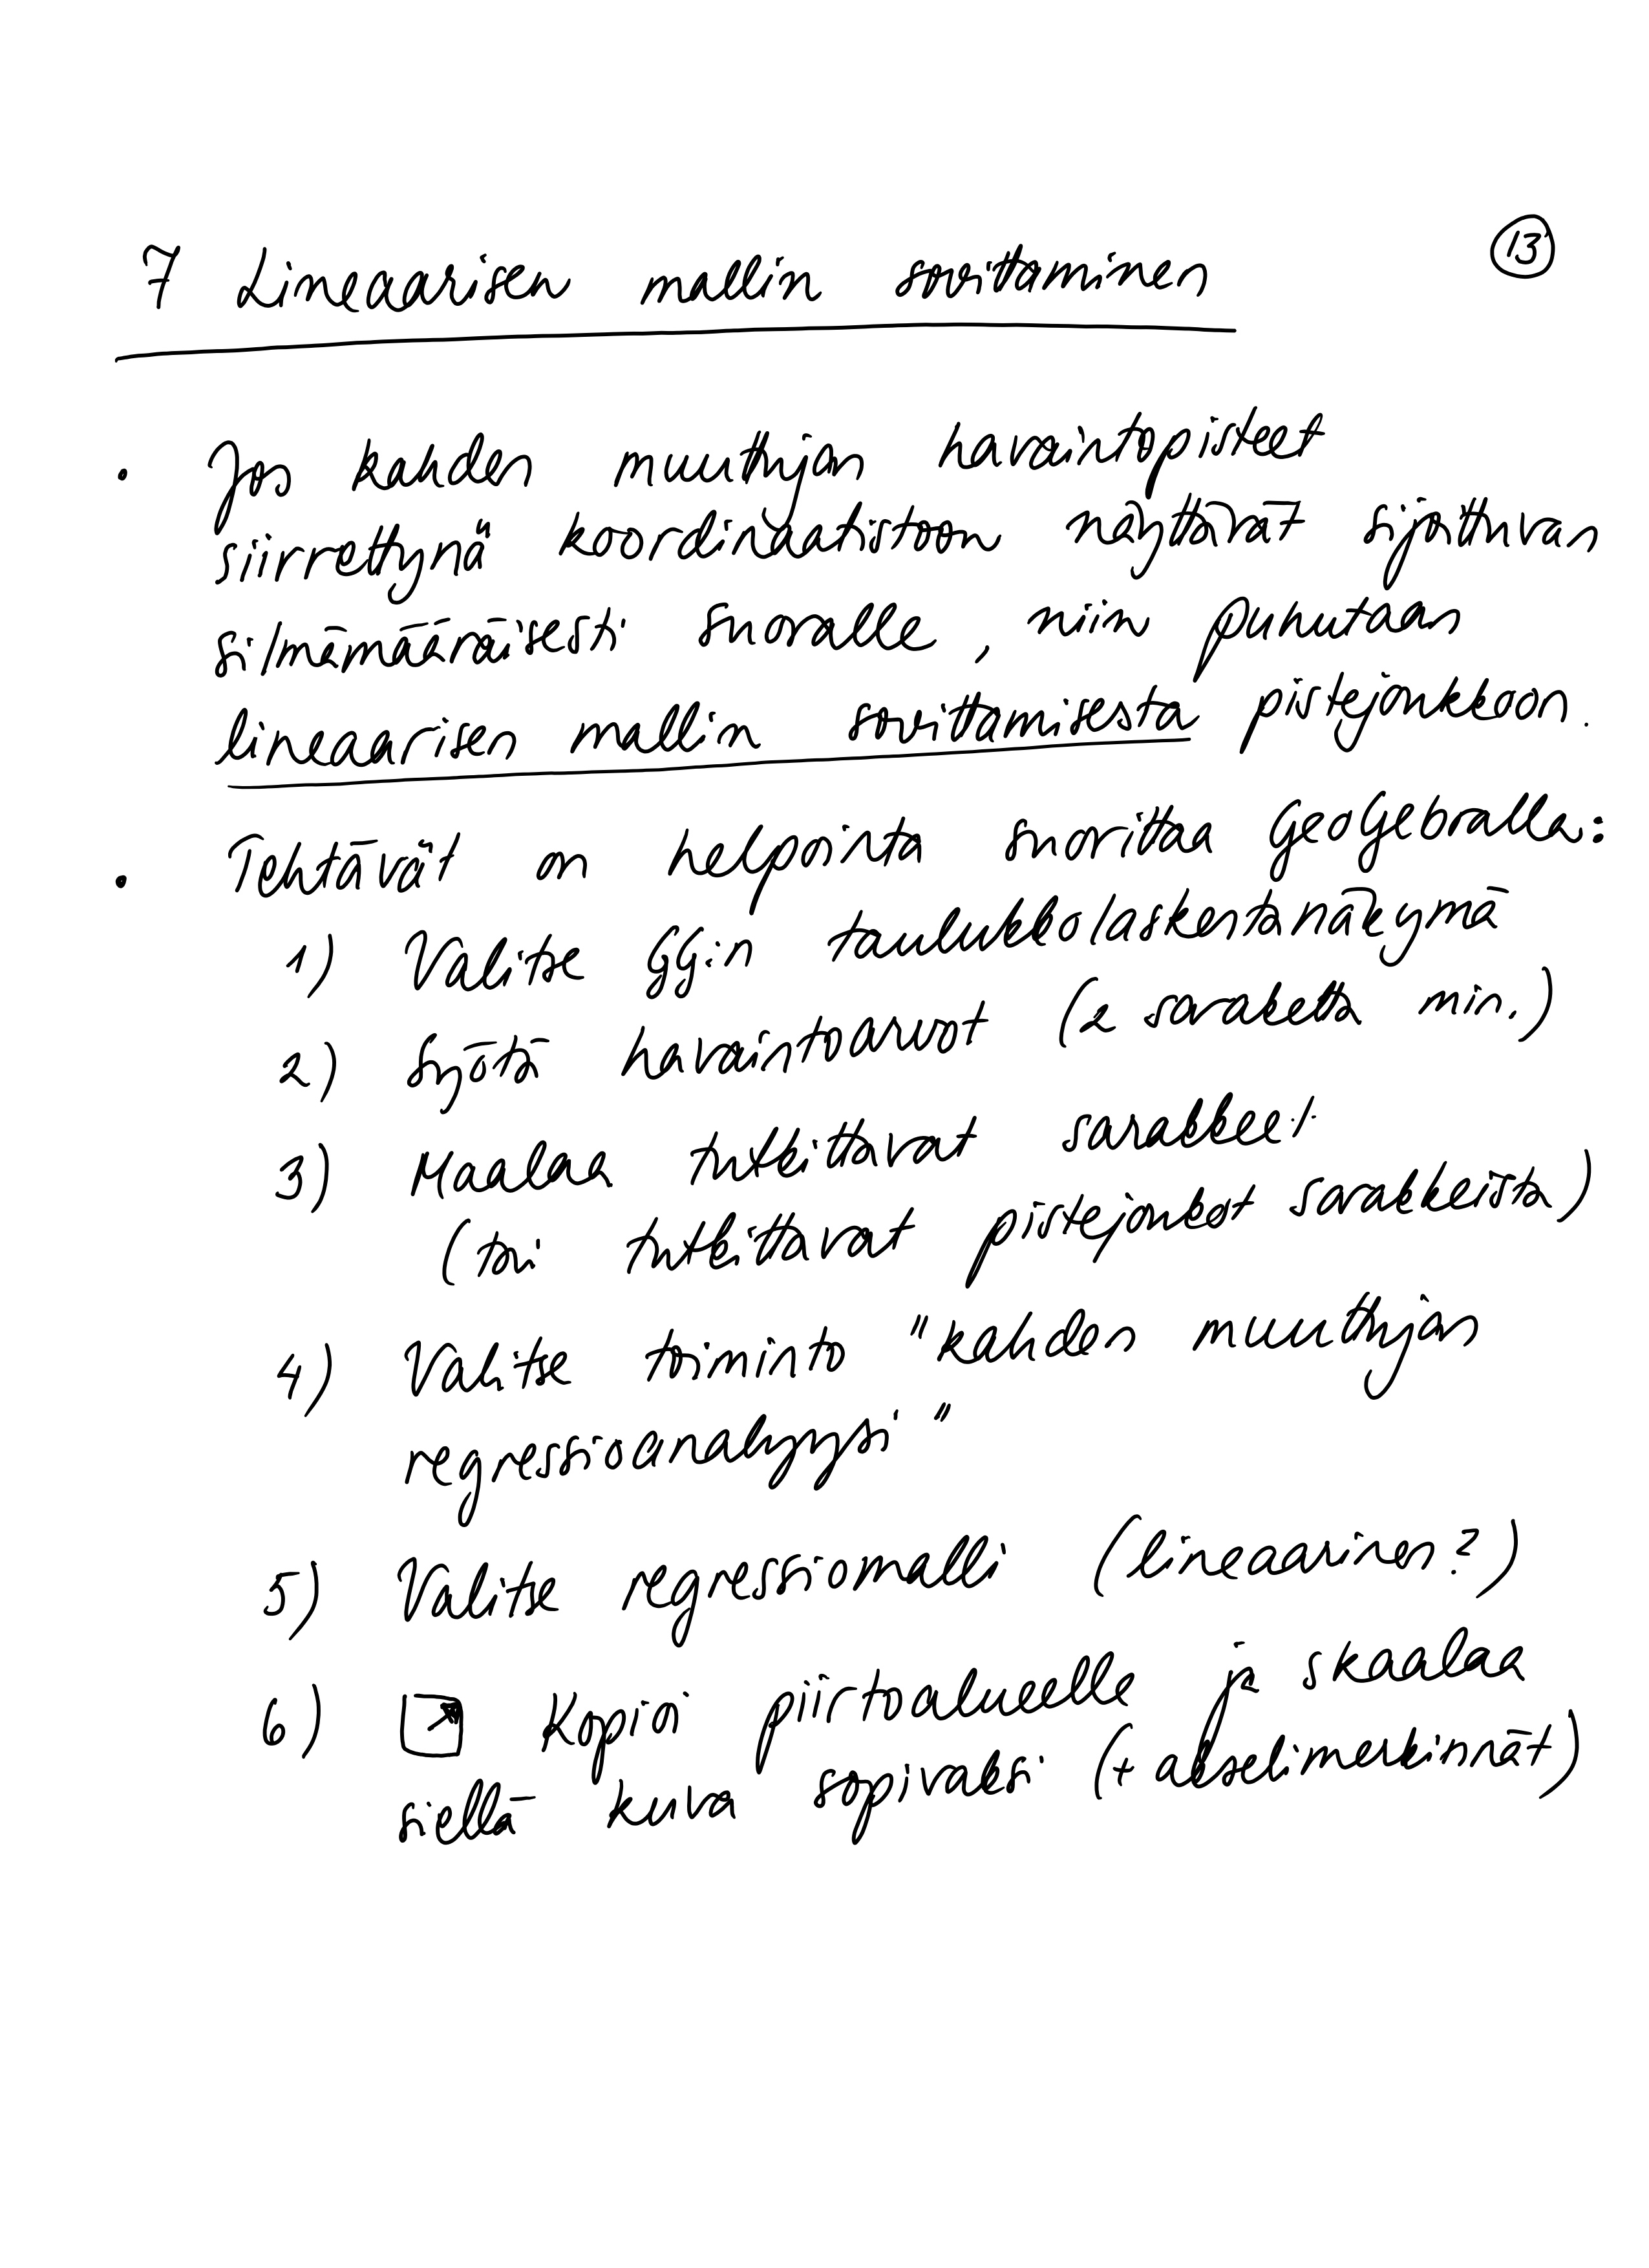 7 Lineaarisen mallin sovittaminen
13
• Jos kahden muuttujan havaintopisteet
siirrettynä koordinaatistoon näyttävät sijoittuvan
silmämääräisesti suoralle, niin puhutaan
lineaarisen mallin sovittamisesta pistejoukkoon.
• Tehtävät on helpointa suorittaa GeoGebralla:
1) Valitse GG:n taulukkolaskentanäkymä
2) Syötä havaintoarvot (2 saraketta min.)
3) Maalaa tutkittavat sarakkeet
(tai tutkittavat pistejoukot sarakkeista)
4) Valitse toiminto "kahden muuttujan
regressioanalyysi"
5) Valitse regressiomalli (lineaarinen?)
6) Kopioi piirtoalueelle ja skaalaa
siellä kuva sopivaksi (+ akselimerkinnät)